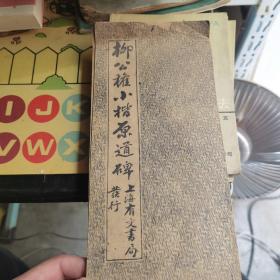 柳公權小楷原道碑
上海有文書局
發行
I
J
K
V
W
X